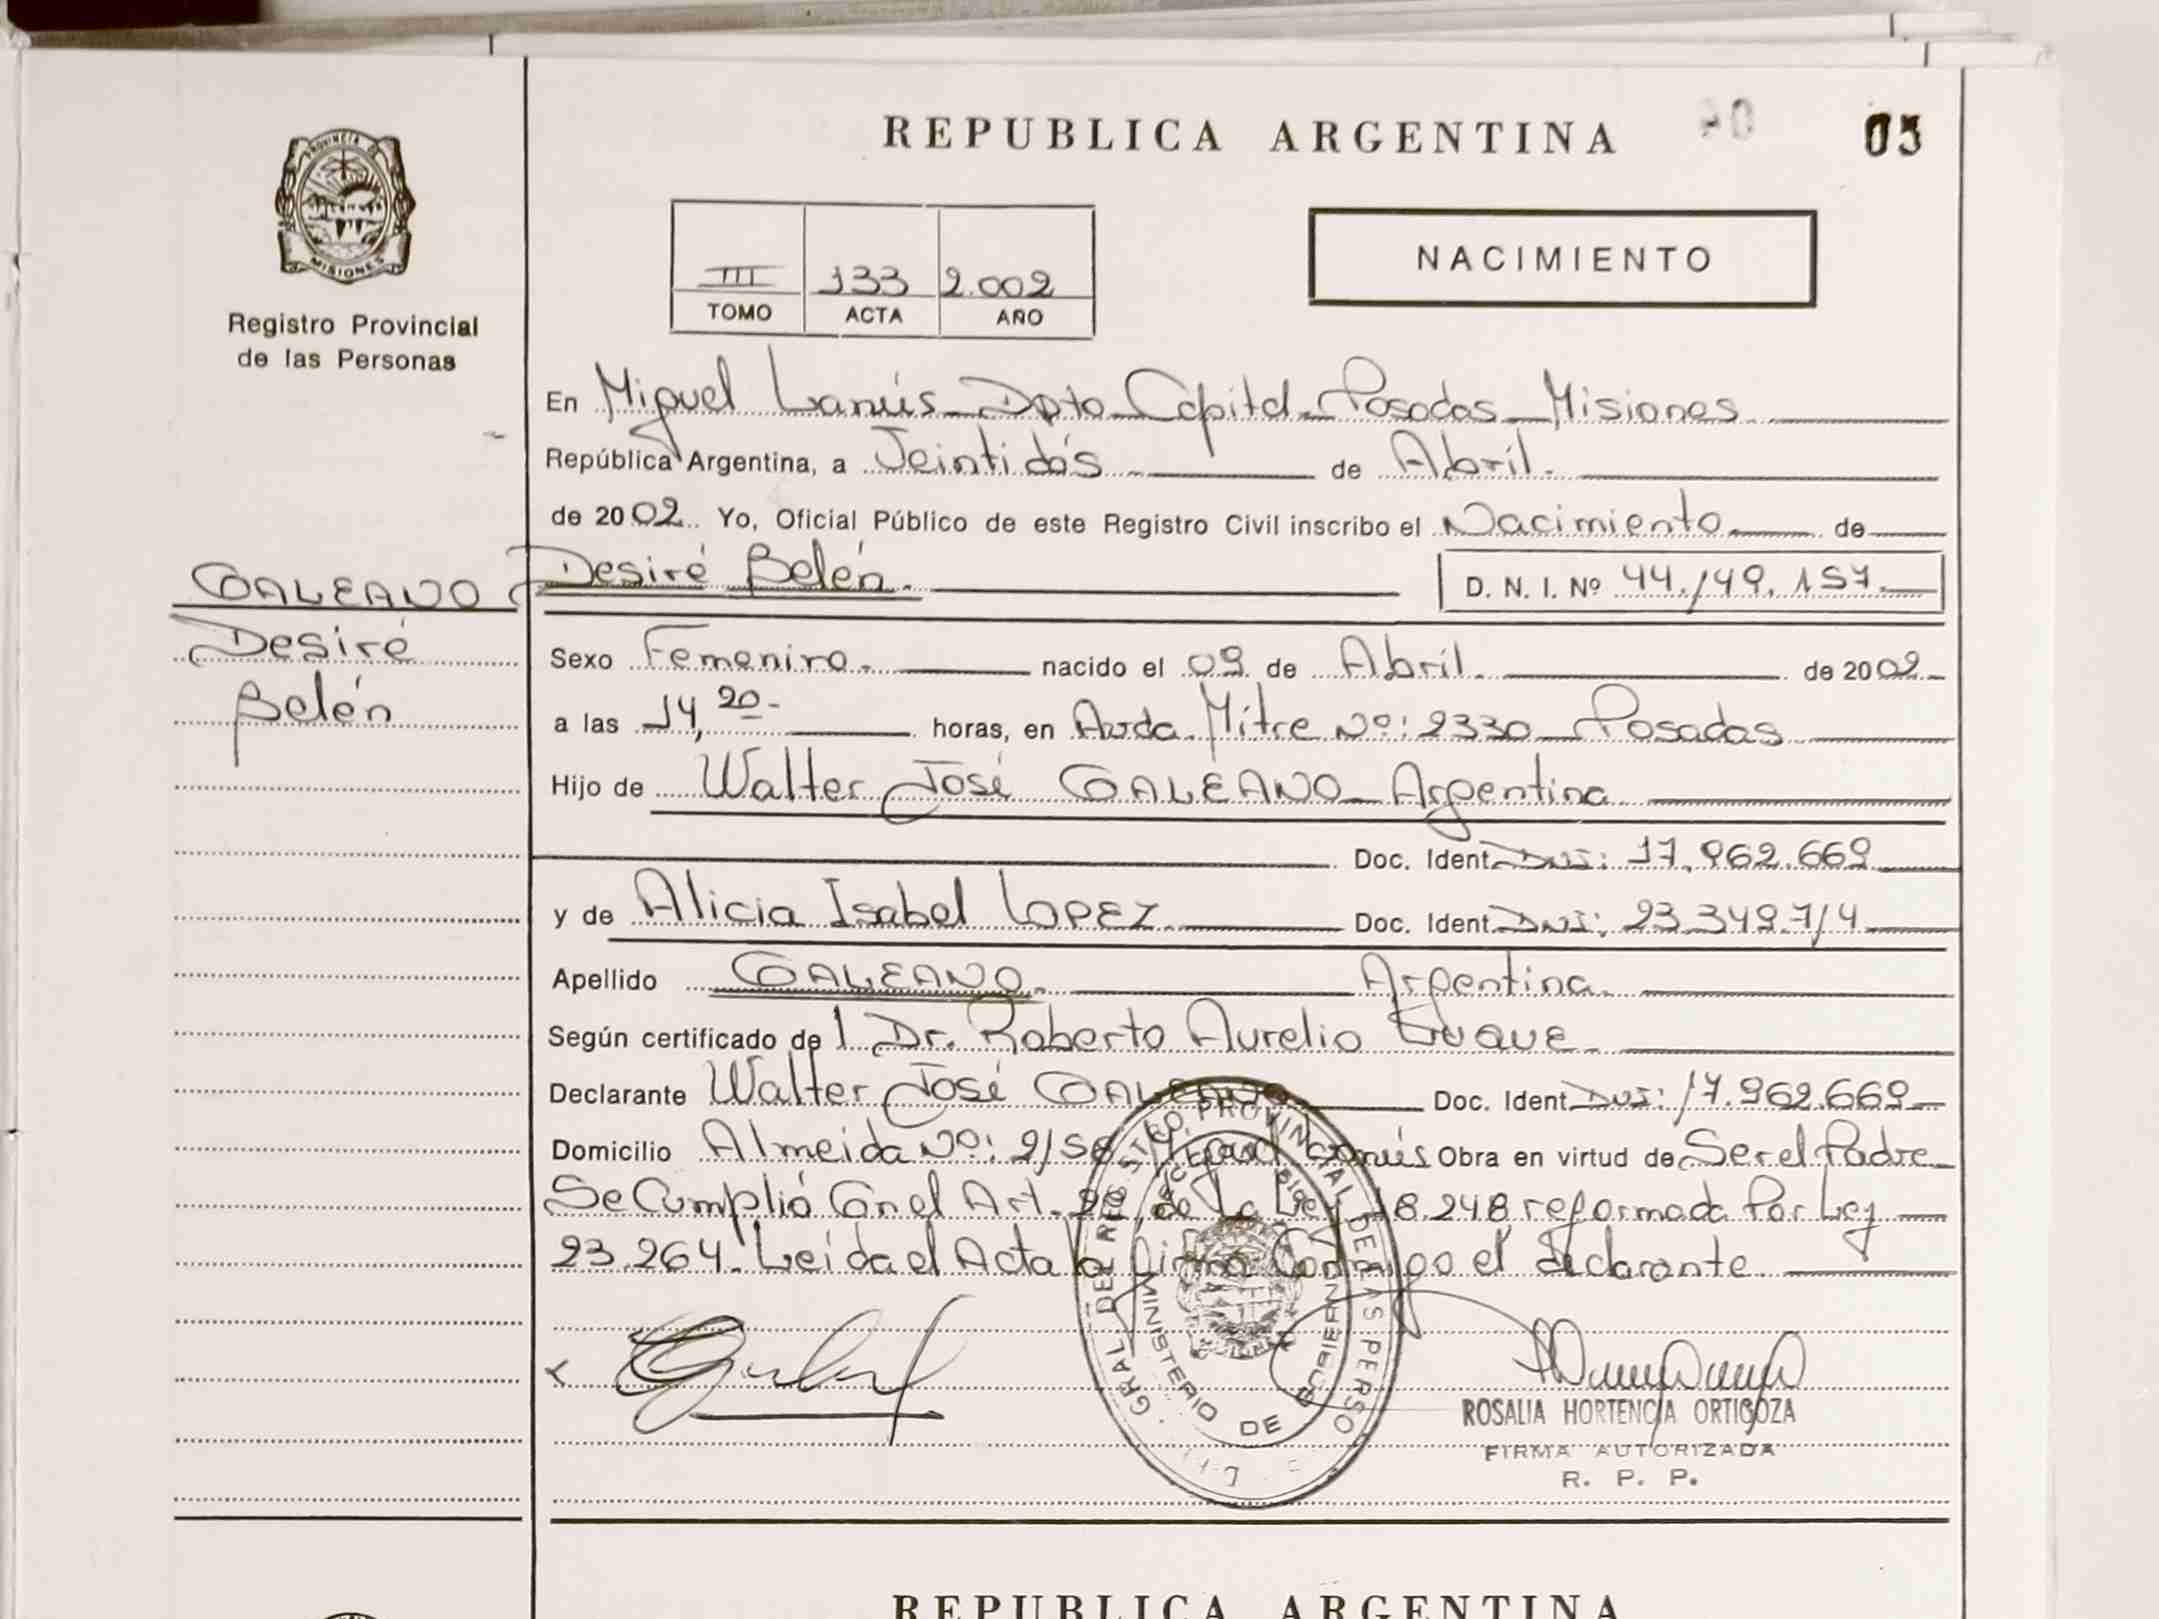 REPUBLICA ARGENTINA
03
PROVINCIA DE
MISIONES
Registro Provincial
de las Personas
III 133 2.002
TOMO ACTA AÑO
NACIMIENTO
En Miguel Lanús Dpto Capital Posadas Misiones
República Argentina, a Veintidós de Abril.
de 2002. Yo, Oficial Público de este Registro Civil inscribo el Nacimiento de
GALEANO
Desiré
Belén
Desiré Belén.
D. N. I. Nº 44.149.157.
Sexo Femenino. nacido el 09 de Abril. de 2002
a las 14,20- horas, en Avda. Mitre Nº: 2330 Posadas
Hijo de Walter José GALEANO Argentina
Doc. Ident. DNI: 17.962.669
y de Alicia Isabel LOPEZ. Doc. Ident. DNI: 23.349.714
Apellido GALEANO. Argentina.
Según certificado del Dr. Roberto Aurelio
Declarante Walter José GALEANO Doc. Ident. DNI: 17.962.669
Domicilio Almeida Nº: Miguel Lanús Obra en virtud de Ser el Padre
Se Cumplió Con el Art. de La Ley 18.248 reformada Por Ley
23.264. Leída el Acta la firma Conmigo el declarante.
GRAL DEL REGISTRO PROVINCIAL DE LAS PERSO
MINISTERIO DE GOBIERNO
ROSALIA HORTENCIA ORTIGOZA
FIRMA AUTORIZADA
R. P. P.
REPUBLICA ARGENTINA